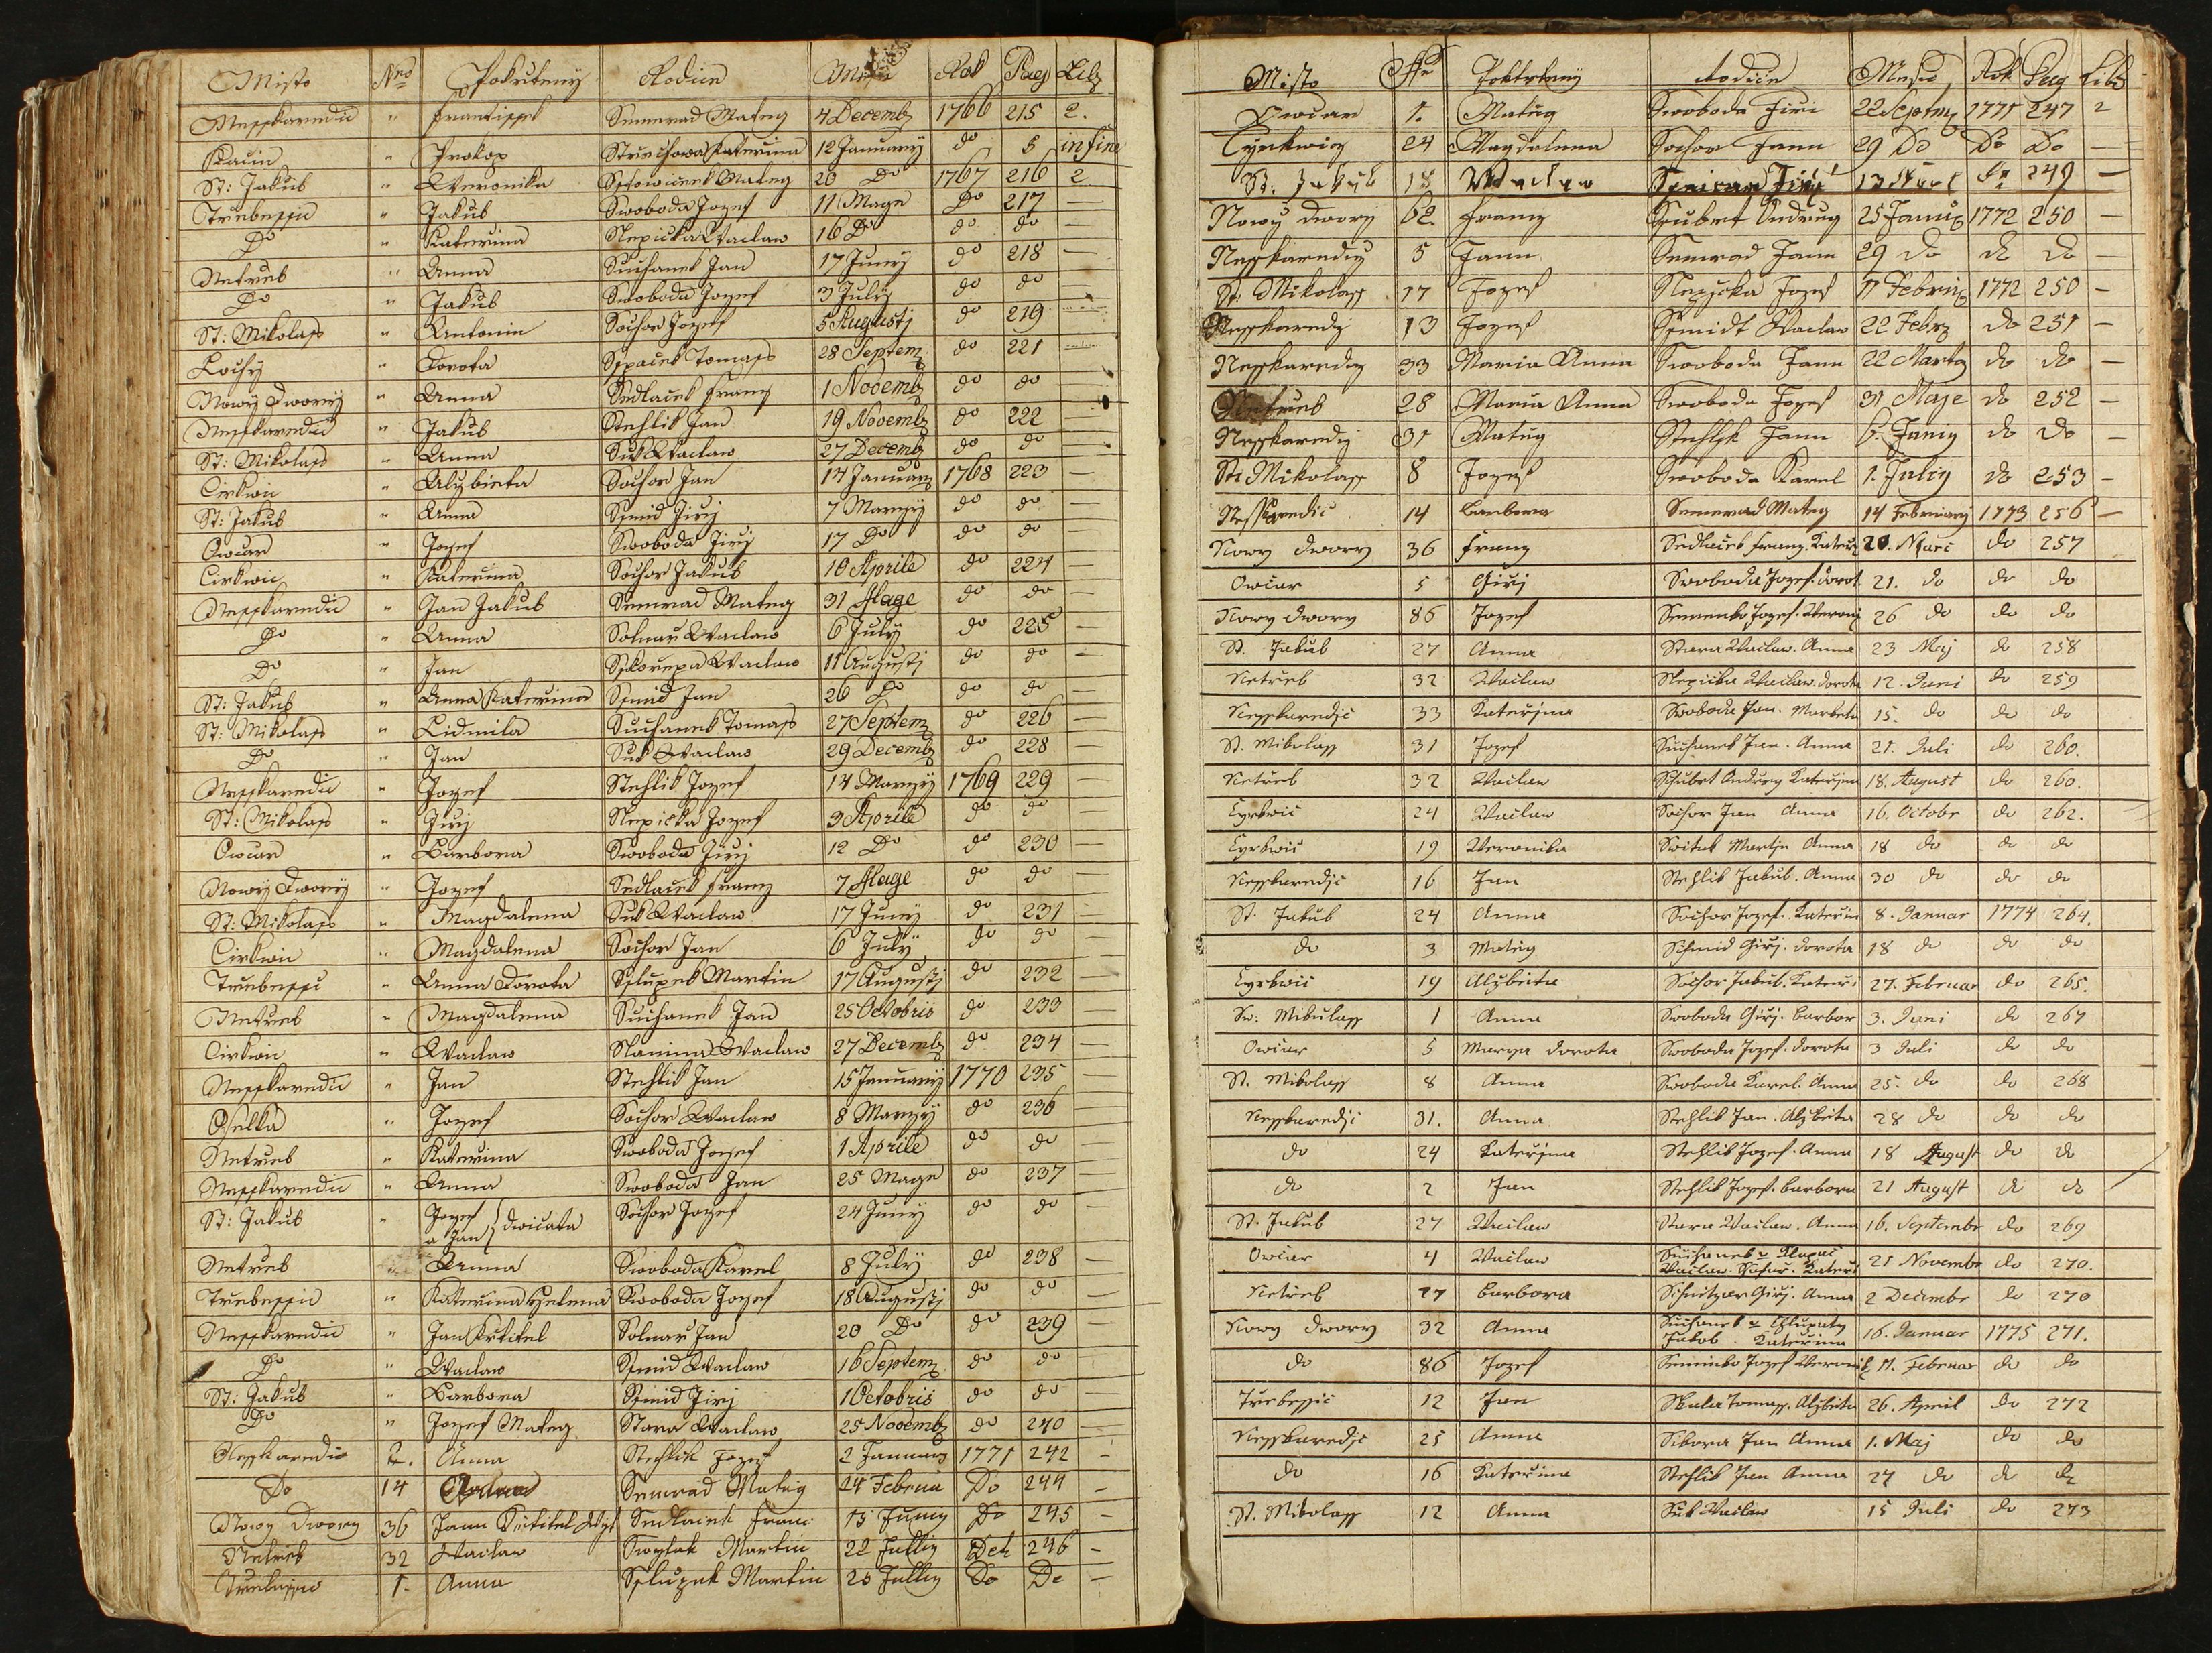 Misto Nro Pokrtieny Rodice Rok Pag Lib
Nesskaredic " Frantissek Semerad Mateg 4 Decemb 1766 215 2.
Kacin " Prokop Katerina 12 January do 5 in fine
St: Jakub " Weronika Mateg 20 Do 1767 216 2
Trebessic " Jakub Swoboda Jozef 11 Mage Do 217 —
Do " Katerina Slepicka Waclaw 16 Do do do —
Netreb " Anna Suchanek Jan 17 Juny do 218 —
Do " Jakub Swoboda Jozef 3 July do do —
St: Mikolass " Antonin Sochor Jozef 5 Augusti do 219
Lochy " Dorota Sspacek Tomass 28 Septem do 221
Nowy Dwory " Anna Sedlacek Franz 1 Novemb do do —
Nesskaredic " Jakub Stehlik Jan 19 Novemb do 222 —
St: Mikolass " Anna Suk Waclaw 27 Decemb do do —
Cirkwic " Alzbieta Sochor Jan 14 January 1768 223 —
St: Jakub " Anna Ssmid Jirj 7 Marzy do do —
Owcar " Jozef Swoboda Jirj 17 Do do do —
Cirkwic " Katerina Sochor Jakub 10 Aprile do 224 —
Nesskaredic " Jan Jakub Semrad Mateg 31 Mage do do —
Do " Anna Solnar Waclaw 6 July do 225 —
Do " Jan Sskorepa Waclaw 11 Augusti do do —
St: Jakub " Anna Katerina Ssmid Jan 26 Do do do —
St: Mikolass " Lidmila Suchanek Tomass 27 Septem do 226 —
Do " Jan Suk Waclaw 29 Decemb do 228 —
Nesskaredic " Jozef Stehlik Jozef 14 Marzy 1769 229 —
St: Mikolass " Jirj Slepicka Jozef 3 Aprile do do —
Owcar " Barbora Swoboda Jirj 12 Do do 230 —
Nowy Dwory " Jozef Sedlacek Franz 7 Mage do do —
St: Mikolass " Magdalena Suk Waclaw 17 Juny do 231 —
Cirkwic " Magdalena Sochor Jan 6 July do do —
Trebessic " Anna Dorota Sslupek Martin 17 Augusti do 232 —
Netreb " Magdalena Suchanek Jan 25 Octobris do 233 —
Cirkwic " Waclaw Slanina Waclaw 27 Decemb do 234 —
Nesskaredic " Jan Stehlik Jan 15 January 1770 235 —
" Jozef Sochor Waclaw 8 Marzy do 236 —
Netreb " Katerina Swoboda Jozef 1 Aprile do do —
Nesskaredic " Anna Swoboda Jan 25 Mage do 237 —
St: Jakub " Jozef a Jan } dwicata Sochor Jozef 24 Juny do do —
Netreb Anna Swoboda Karel 8 July do 238 —
Trebessic " Katerina Helena Swoboda Jozef 18 Augusti do do —
Nesskaredic " Jan Krtitel Solnar Jan 20 Do do 239 —
Do " Waclaw Ssmid Waclaw 16 Septem do do —
St: Jakub " Barbora Ssmid Jirj 1 Octobris do do —
Do " Jozef Mateg Stara Waclaw 25 Novemb do 240 —
Nesskaredic 2. Anna Stehlik Jozef 2 January 1771 242 -
Do 14 Semrad Mateg 24 Februa Do 244 -
Nowy Dwory 36 Jann Krtitel Sedlacek Franc 15 Juny Do 245 -
Netreb 32 Waclaw Martin 22 Julli 246 -
Trebessic 1. Anna Sslupek Martin 25 Julli Do Do —
Misto Nro Rodicie Mesic Rok Pag Lib
Owcar 1. Mateg Swoboda Jiri 22 Septem 1771 247 2
Cyrkwic 24 Magdalena Sochor Jann 29 Do Do Do —
St. Jakub 18 Waclaw 249 —
Nowy Dwory 62 Franz Andreg 25 Janu 1772 250 -
Nesskaredic 5 Jann Semrad Jann 29 do do do —
St: Mikolass 17 Jozef Slepicka Jozef 17 Febru 1772 250 —
Nesskaredic 13 Jozef Ssmidt Waclaw 22 Febr do 251 —
Nesskaredic 33 Maria Anna Swoboda Jann 22 Marty do do —
Netreb 28 Maria Anna Swoboda Jozef 31 Maje do 252 —
Nesskaredic 31 Mateg Stehlyk Jann 6. Juny do do —
St: Mikolass 8 Jozef Swoboda Karel 1. July do 253 —
Nesskaredic 14 Barbora Semerad Mateg 14 February 1773 256 —
Nowy Dwory 36 Franz Sedlacek Franz. Kater 20. Marc do 257
Owcar 5 Girj Swoboda Jozef. Dorot. 21. do do do
Nowy Dwory 86 Jozef Jozef. Weron 26 do do do
St. Jakub 27 Anna Stara Waclaw. Anna 23 Maj do 258
Netreb 32 Waclaw Slepicka Waclaw. Dorota 12. Juni do 259
Nesskaredic 33 Katerjna Swoboda Jan. Marketa 15. do do do
St. Mikolass 31 Jozef Suchanek Jan. Anna 21. Juli do 260.
Netreb 32 Waclaw Schubrt Andreg Katerjna 18. August do 260.
Cyrkwic 24 Waclaw Sochor Jan Anna 16. Octobr do 262.
Cyrkwic 19 Weronika Switak Martin Anna 18 do do do
Nesskaredic 16 Jan Stehlik Jakub. Anna 30 do do do
St. Jakub 24 Anna Sochor Jozef. Katerin 8. Januar 1774 264.
do 3 Mateg Schmid Girj. Dorota 18 do do do
Cyrkwic 19 Alzbieta Sochor Jakub. Kateri 27. Februar do 265.
Sw: Mikulass 1 Anna Swoboda Girj. Barbor 3. Juni do 267
Owcar 5 Marya Dorota Swoboda Jozef. Dorota 3 Juli do do
St. Mikolass 8 Anna Swoboda Karel. Anna 25. do do 268
Nesskaredic 31. Anna Stehlik Jan. Alzbeta 28 do do do
do 24 Katerjna Stehlik Jozef. Anna 18 August do do
do 2 Jan Stehlik Jozef. Barbora 21 August do do
St. Jakub 27 Waclaw Stara Waclaw. Anna 16. Septembr do 269
Owcar 4 Waclaw Suchanek Waclaw. Kateri 21 Novembr do 270.
Netreb 27 Barbora Schnitzer Girj. Anna 2 Decembr do 270
Nowy Dwory 32 Anna Suchanek Jakob. Katerina 16. Januar 1775 271.
do 86 Jozef Jozef Weronik 11. Februar do do
Trebessic 12 Jan Skala Tomass. Alzbieta 26. April do 272
Nesskaredic 25 Anna Sikora Jan Anna 1. Maj do do
do 16 Katerina Stehlik Jan Anna 27 do do do
St. Mikolass 12 Anna Suk Waclaw 15 Juli do 273